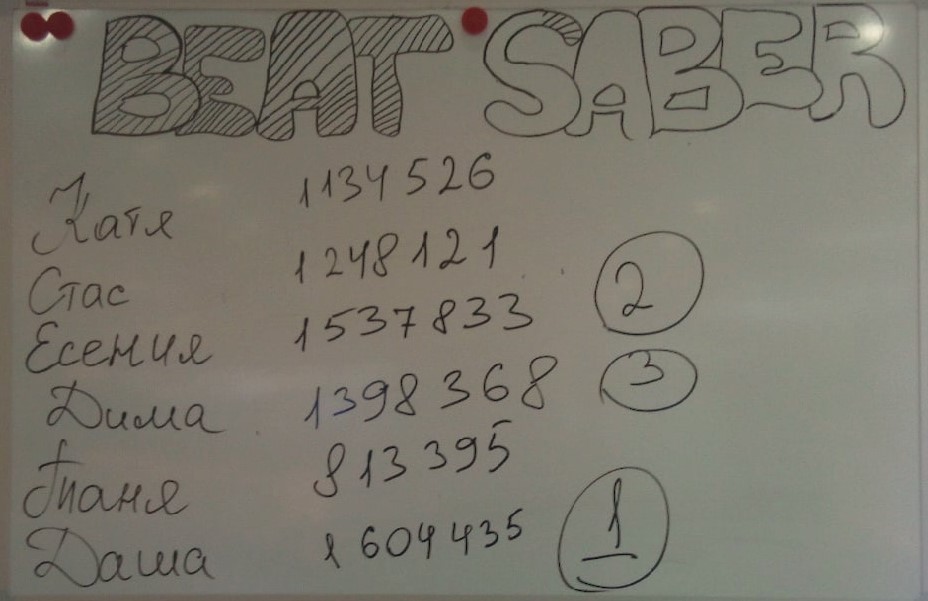 BEAT SABER
Катя 1134526
Стас 1248121
Есения 1537833 2
Дима 1398368 3
Таня 813395
Даша 1604435 1